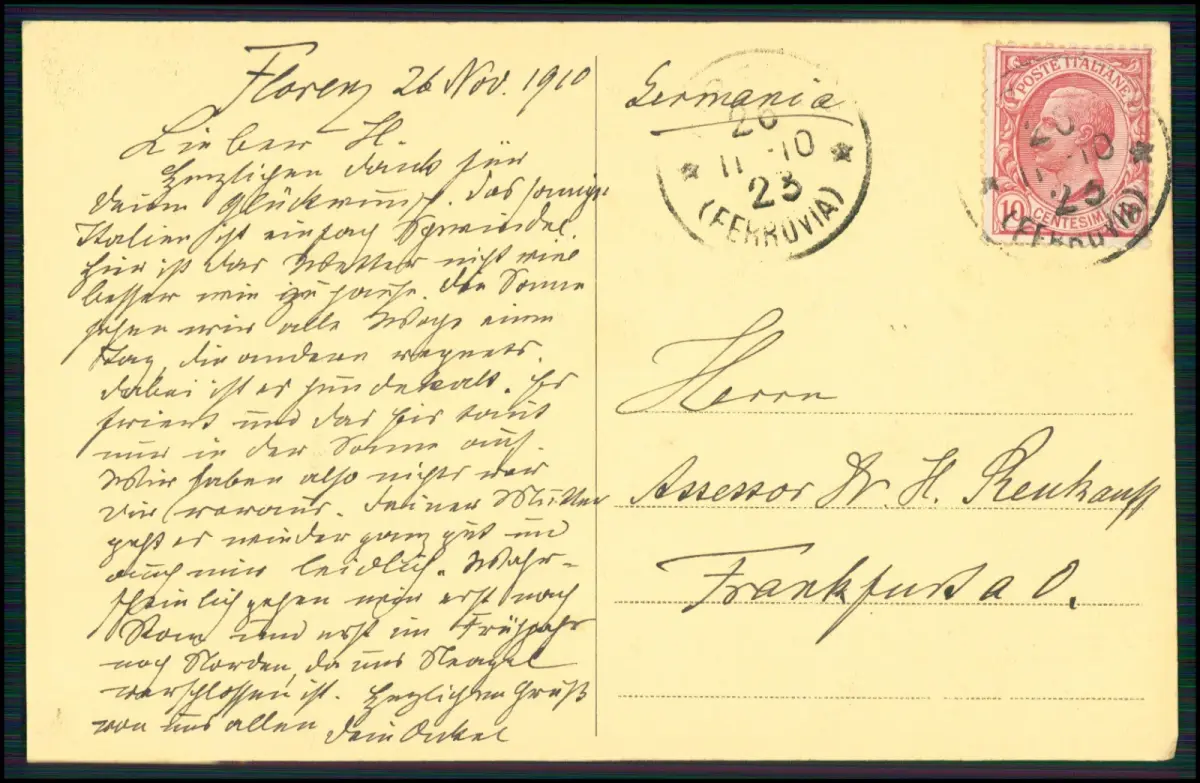 Florenz 26 Nov. 1910
Lieber H.
Herzlichen Dank für
Deinen Glückwunsch. Das sonnige
Italien ist einfach Schwindel.
Hier ist das Wetter nicht viel
besser wie zu Hause. Die Sonne
sehen wir alle Woche einen
Tag, die andern regnets.
Dabei ist es hundekalt. Es
friert und das Eis taut
nur in der Sonne auf.
Wir haben also nichts vor
Dir voraus. Deiner Mutter
geht es wieder ganz gut und
auch mir leidlich. Wahr-
scheinlich gehen wir erst nach
Rom und erst im Frühjahr
nach Norden, da uns Neapel
verschlossen ist. Herzlichen Gruß
von uns allen Dein Onkel
Germania
26
11 -10
23
(FERROVIA)
POSTE ITALIANE
10 CENTESIMI
26
11 -10
23
(FERROVIA)
Herrn
Assessor Dr. H. Reukauff
Frankfurt a O.